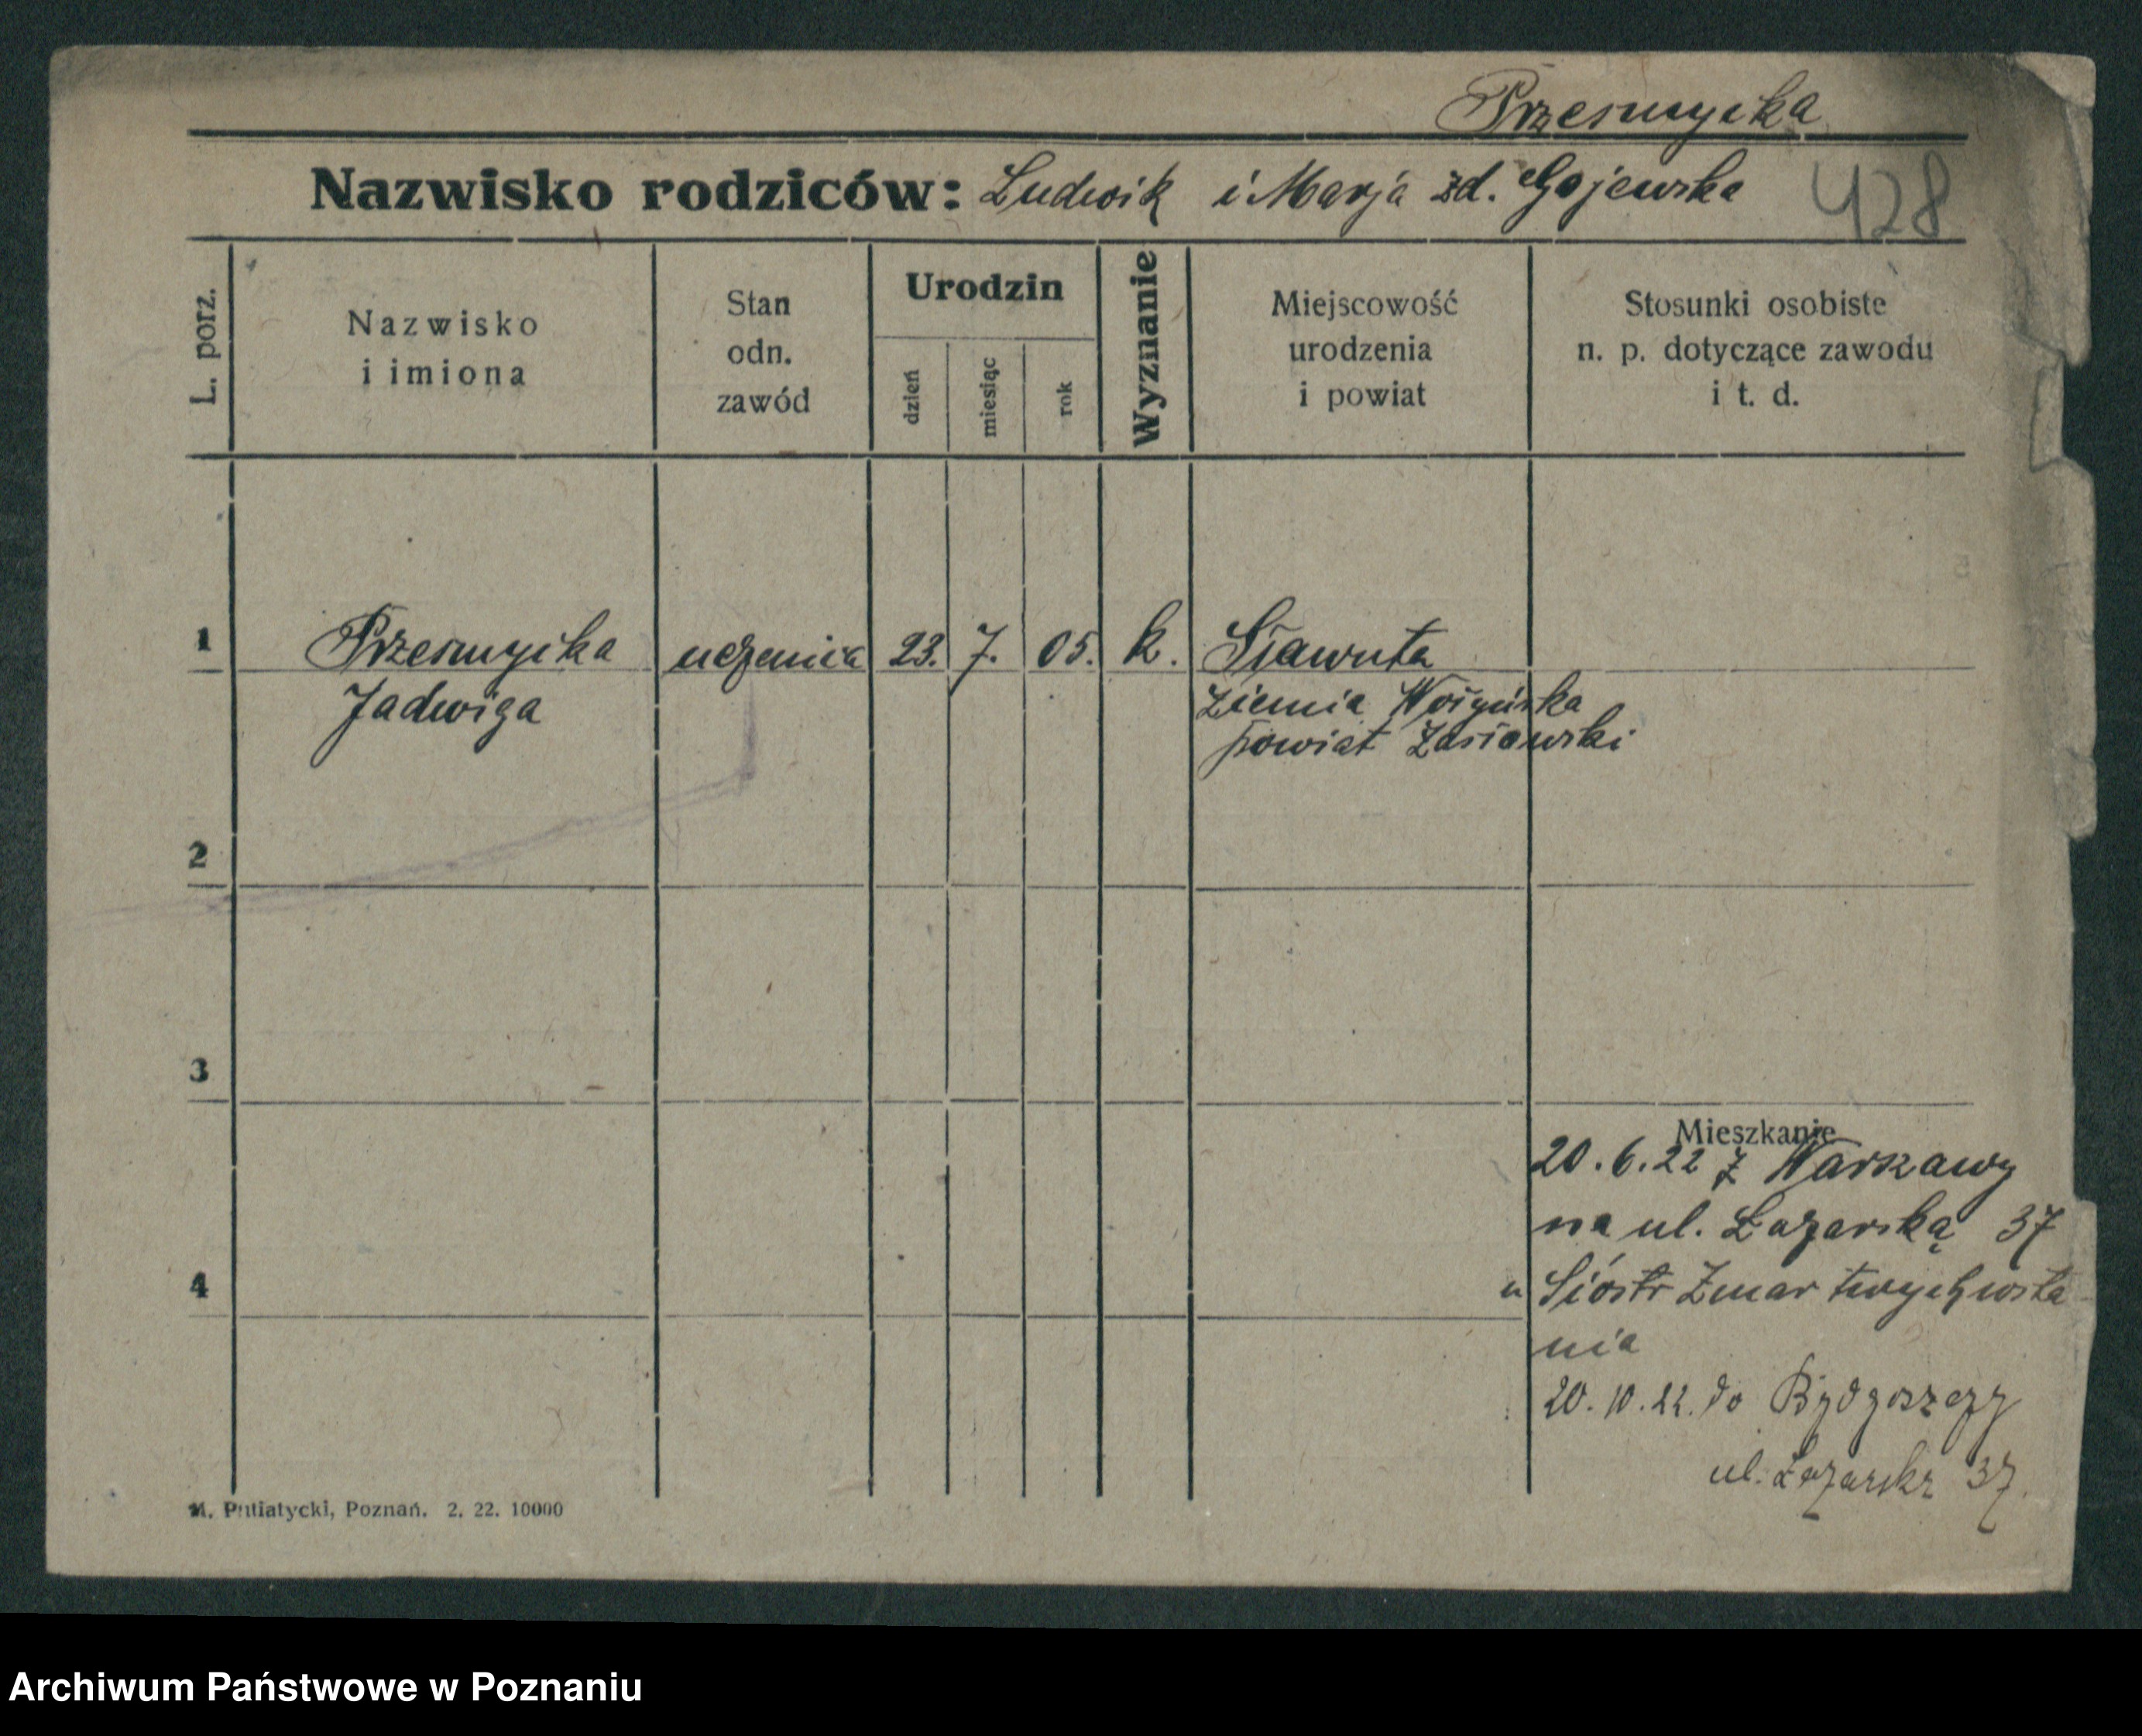 Przesmycka
Nazwisko rodziców: Ludwik i Marja zd. Gojewska 428
L. porz.
Nazwisko
i imiona
Stan
odn.
zawód
Urodzin
dzień
miesiąc
rok
Wyznanie
Miejscowość
urodzenia
i powiat
Stosunki osobiste
n. p. dotyczące zawodu
i t. d.
1 Przesmycka uczenica 23. 7. 05. k. Sławuta
Jadwiga
Ziemia Wołyńska
powiat Zasławski
2
3
Mieszkanie
20.6.22 z Warszawy
na ul. Łazarską 37
4
u Sióstr Zmartwychwsta
nia
20.10.22. do Bydgoszczy
ul. Łazarska 37.
M. Putiatycki, Poznań. 2. 22. 10000
Archiwum Państwowe w Poznaniu